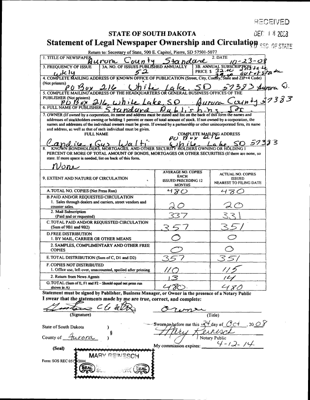 RECEIVED
OCT 14 2008
STATE OF SOUTH DAKOTA
Statement of Legal Newspaper Ownership and Circulation
SEC. OF STATE
Return to: Secretary of State, 500 E. Capitol, Pierre, SD 57501-5077
1. TITLE OF NEWSPAPER Aurora County Standard
2. DATE 10-23-08
3. FREQUENCY OF ISSUE wkly
3A. NO. OF ISSUES PUBLISHED ANNUALLY 52
3B. ANNUAL SUBSCRIPTION PRICE $
4. COMPLETE MAILING ADDRESS OF KNOWN OFFICE OF PUBLICATION (Street, City, County, State and ZIP+4 Code)
(Not printers)
PO Box 216, White Lake SD 57383 Aurora
5. COMPLETE MAILING ADDRESS OF THE HEADQUARTERS OF GENERAL BUSINESS OFFICES OF THE
PUBLISHER (Not printer)
PO Box 216, White Lake, SD Aurora County 57383
6. FULL NAME OF PUBLISHER: Standard Publishing, Inc
7. OWNER (If owned by a corporation, its name and address must be stated and also immediately thereunder the names and
FULL NAME COMPLETE MAILING ADDRESS
PO Box 216
Candice & Gus Walti White Lake SD 57383
8. KNOWN BONDHOLDERS, MORTGAGEES, AND OTHER SECURITY HOLDERS OWNING OR HOLDING 1
PERCENT OR MORE OF TOTAL AMOUNT OF BONDS, MORTGAGES OR OTHER SECURITIES (If there are none, so
state. If more space is needed, list on back of this form.
None
9. EXTENT AND NATURE OF CIRCULATION
AVERAGE NO. COPIES EACH ISSUED PRECEDING 12 MONTHS
ACTUAL NO. COPIES ISSUED NEAREST TO FILING DATE
A. TOTAL NO. COPIES (Net Press Run) 480 480
B. PAID AND/OR REQUESTED CIRCULATION
1. Sales through dealers and carriers, street vendors and
counter sales. 20 20
2. Mail Subscription
(Paid and or requested) 337 331
C. TOTAL PAID AND/OR REQUESTED CIRCULATION
(Sum of 9B1 and 9B2) 357 351
D. FREE DISTRIBUTION
1. BY MAIL, CARRIER OR OTHER MEANS 0 0
2. SAMPLES, COMPLIMENTARY AND OTHER FREE
COPIES 0 0
E. TOTAL DISTRIBUTION (Sum of C, D1 and D2) 357 351
F. COPIES NOT DISTRIBUTED
1. Office use, left over, unaccounted, spoiled after printing 110 115
2. Return from News Agents 13 14
G. TOTAL (Sum of E, F1 and F2 - Should equal net press run
shown in A) 480 480
Statement must be signed by Publisher, Business Manager, or Owner in the presence of a Notary Public
I swear that the statements made by me are true, correct, and complete:
Owner
(Signature) (Title)
State of South Dakota )
County of Aurora )
Sworn to before me this day of Oct 2008
Mary Reiwesch
Notary Public
(Seal) My commission expires 4-12-14
MARY REIWESCH
SEAL